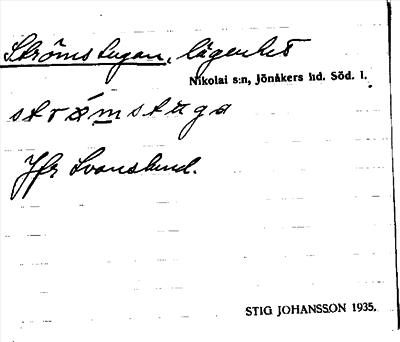 Strömstugan, lägenhet
Nikolai s:n, Jönåkers hd. Söd. l.
strömstuga
Jfr Svanslund.
STIG JOHANSSON 1935.